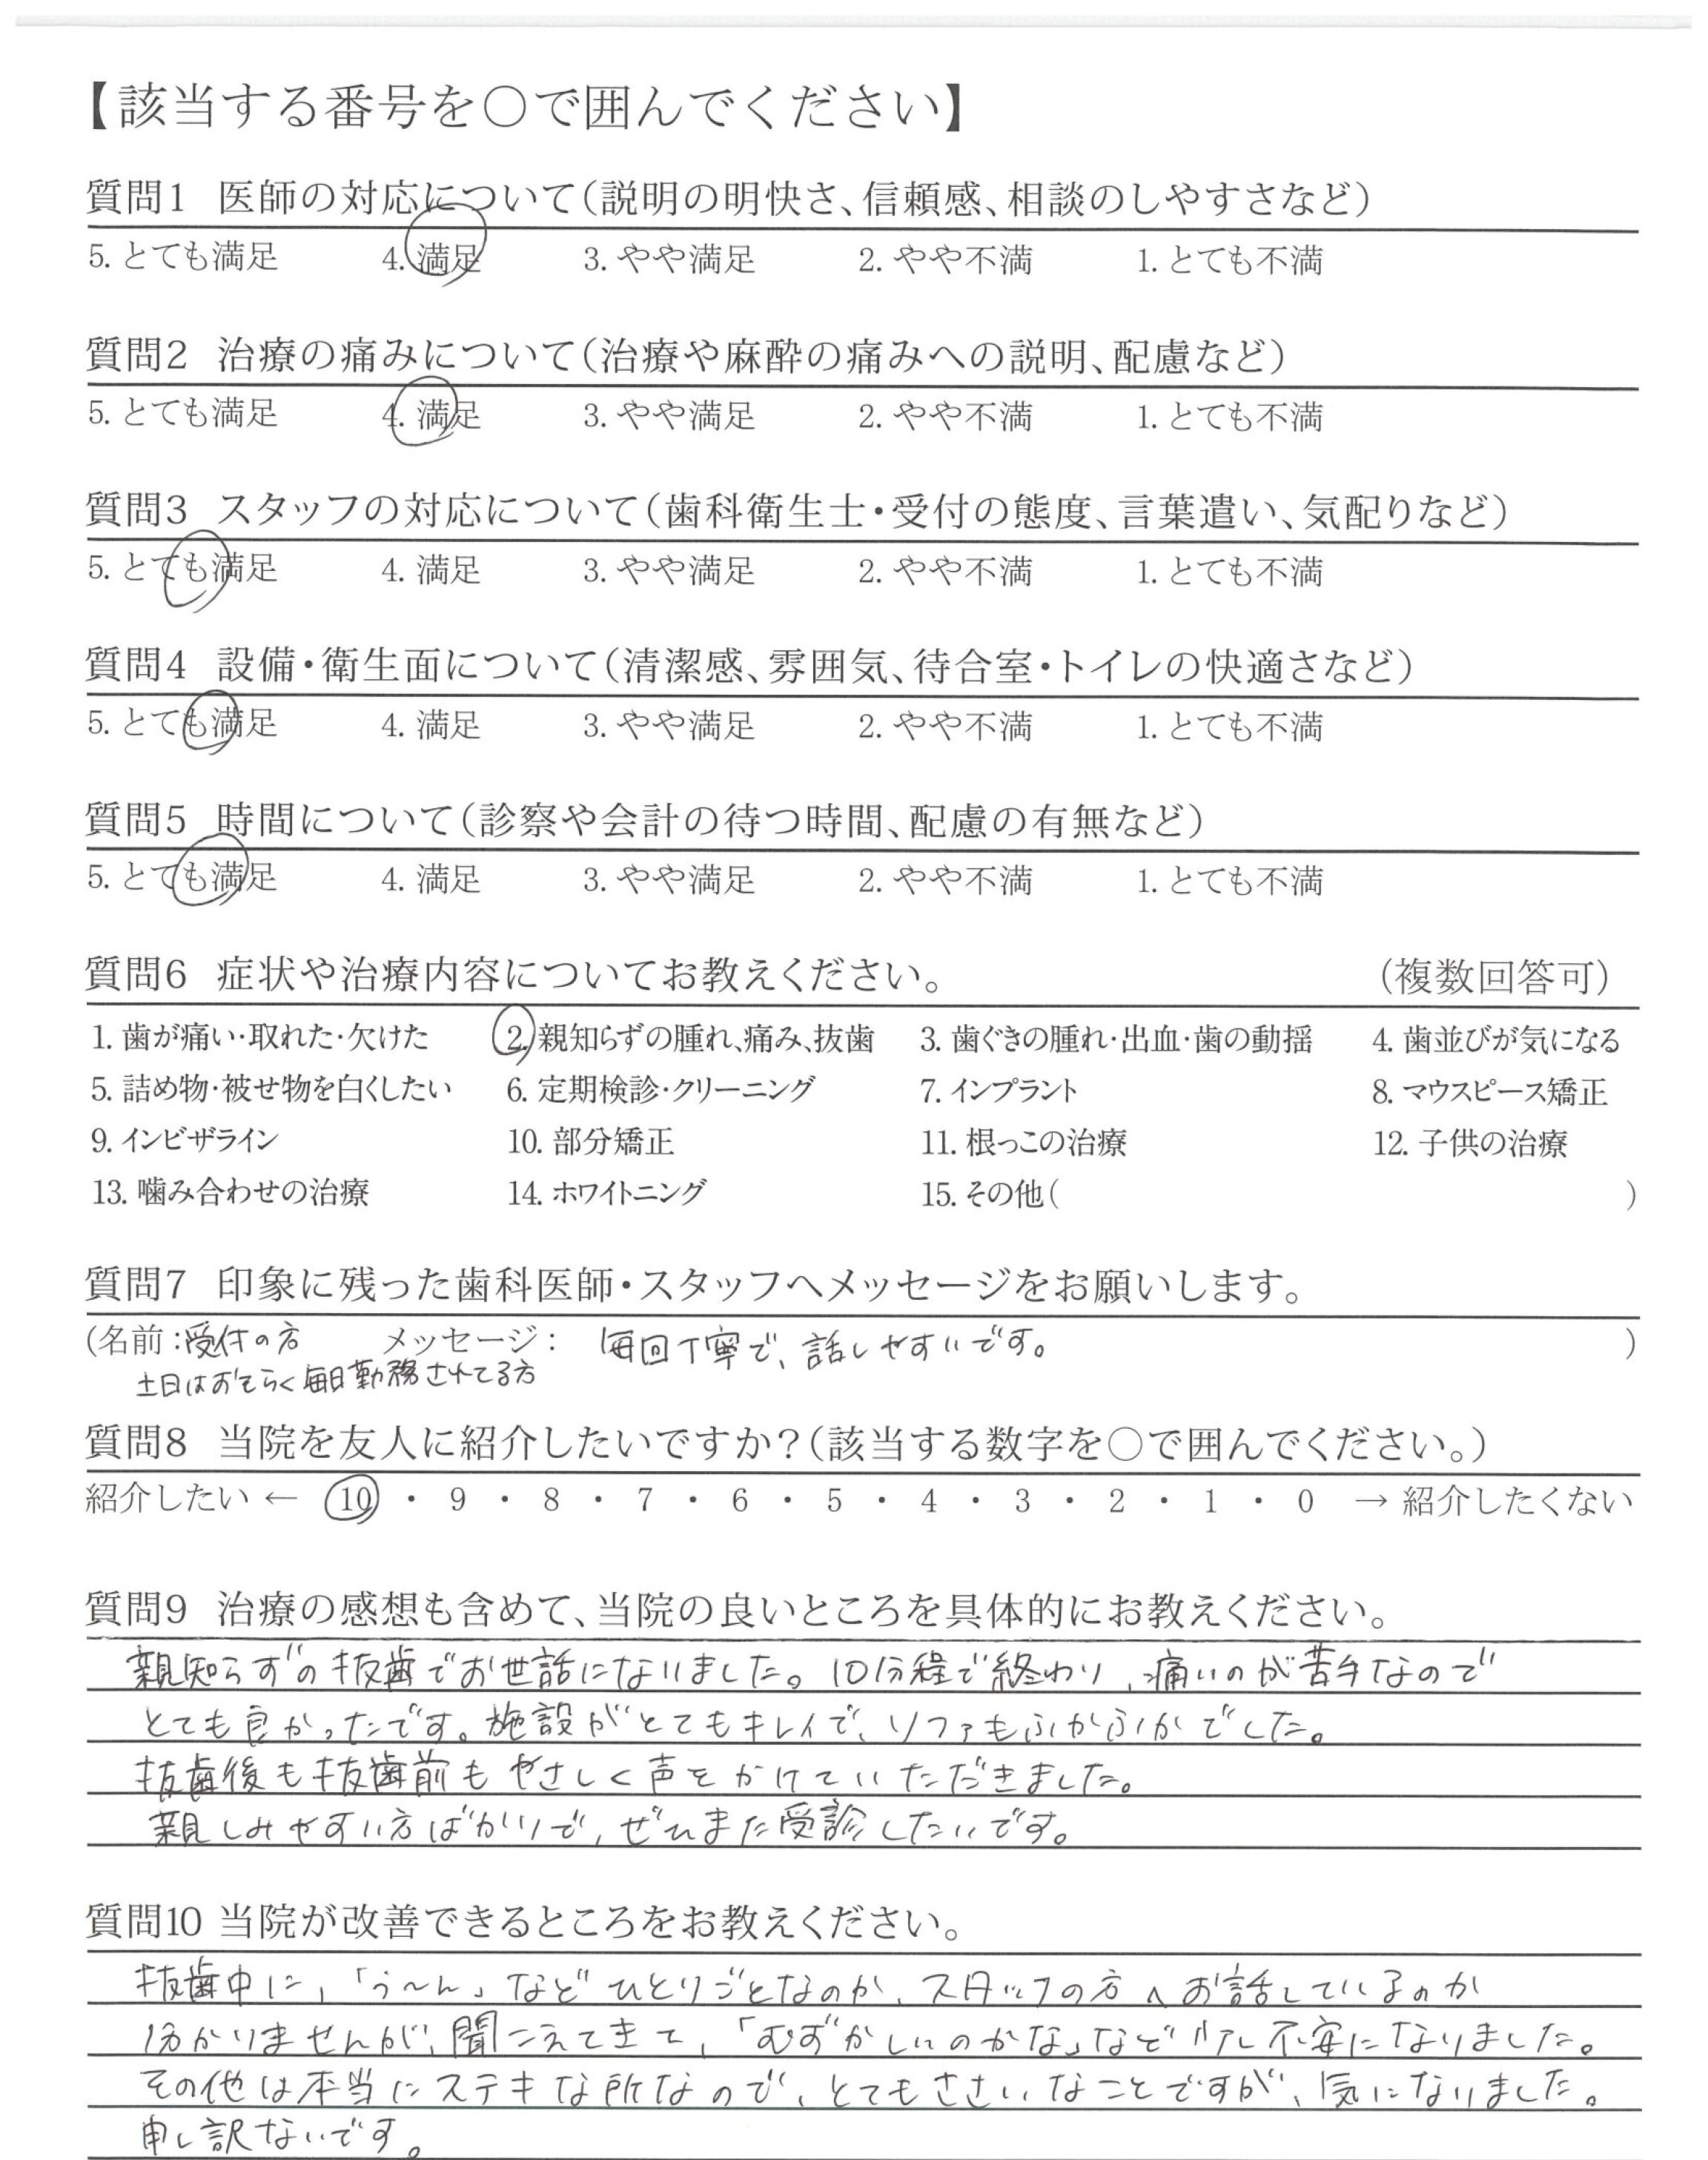 【該当する番号を○で囲んでください】
質問1 医師の対応について（説明の明快さ、信頼感、相談のしやすさなど）
5. とても満足 4. 満足 3. やや満足 2. やや不満 1. とても不満
質問2 治療の痛みについて（治療や麻酔の痛みへの説明、配慮など）
5. とても満足 4. 満足 3. やや満足 2. やや不満 1. とても不満
質問3 スタッフの対応について（歯科衛生士・受付の態度、言葉遣い、気配りなど）
5. とても満足 4. 満足 3. やや満足 2. やや不満 1. とても不満
質問4 設備・衛生面について（清潔感、雰囲気、待合室・トイレの快適さなど）
5. とても満足 4. 満足 3. やや満足 2. やや不満 1. とても不満
質問5 時間について（診察や会計の待つ時間、配慮の有無など）
5. とても満足 4. 満足 3. やや満足 2. やや不満 1. とても不満
質問6 症状や治療内容についてお教えください。 （複数回答可）
1. 歯が痛い・取れた・欠けた 2. 親知らずの腫れ、痛み、抜歯 3. 歯ぐきの腫れ・出血・歯の動揺 4. 歯並びが気になる
5. 詰め物・被せ物を白くしたい 6. 定期検診・クリーニング 7. インプラント 8. マウスピース矯正
9. インビザライン 10. 部分矯正 11. 根っこの治療 12. 子供の治療
13. 噛み合わせの治療 14. ホワイトニング 15. その他（ ）
質問7 印象に残った歯科医師・スタッフへメッセージをお願いします。
（名前：受付の方 メッセージ： 毎回丁寧で、話しやすいです。 ）
土日はおそらく毎日勤務されてる方
質問8 当院を友人に紹介したいですか？（該当する数字を○で囲んでください。）
紹介したい ← 10 ・ 9 ・ 8 ・ 7 ・ 6 ・ 5 ・ 4 ・ 3 ・ 2 ・ 1 ・ 0 → 紹介したくない
質問9 治療の感想も含めて、当院の良いところを具体的にお教えください。
親知らずの抜歯でお世話になりました。10分程で終わり、痛いのが苦手なので
とても良かったです。施設がとてもキレイで、ソファもふかふかでした。
抜歯後も抜歯前もやさしく声をかけていただきました。
親しみやすい方ばかりで、ぜひまた受診したいです。
質問10 当院が改善できるところをお教えください。
抜歯中に、「う〜ん」などひとりごとなのか、スタッフの方へお話しているのか
分かりませんが、聞こえてきて、「むずかしいのかな」など少し不安になりました。
その他は本当にステキな所なので、とてもささいなことですが、気になりました。
申し訳ないです。